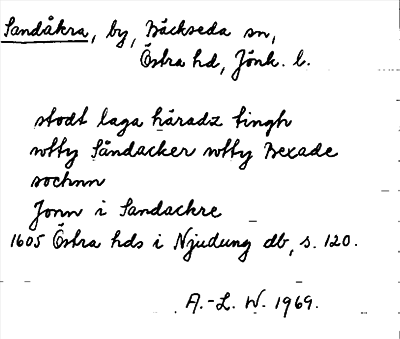 Sandåkra, by, Bäckseda sn,
Östra hd, Jönk. l.
stodt laga häradz tingh
wtty Såndacker wtty Bexade
sochnn
Jonn i Sandackre
1605 Östra hds i Njudung db, s. 120.
A.-L. W. 1969.